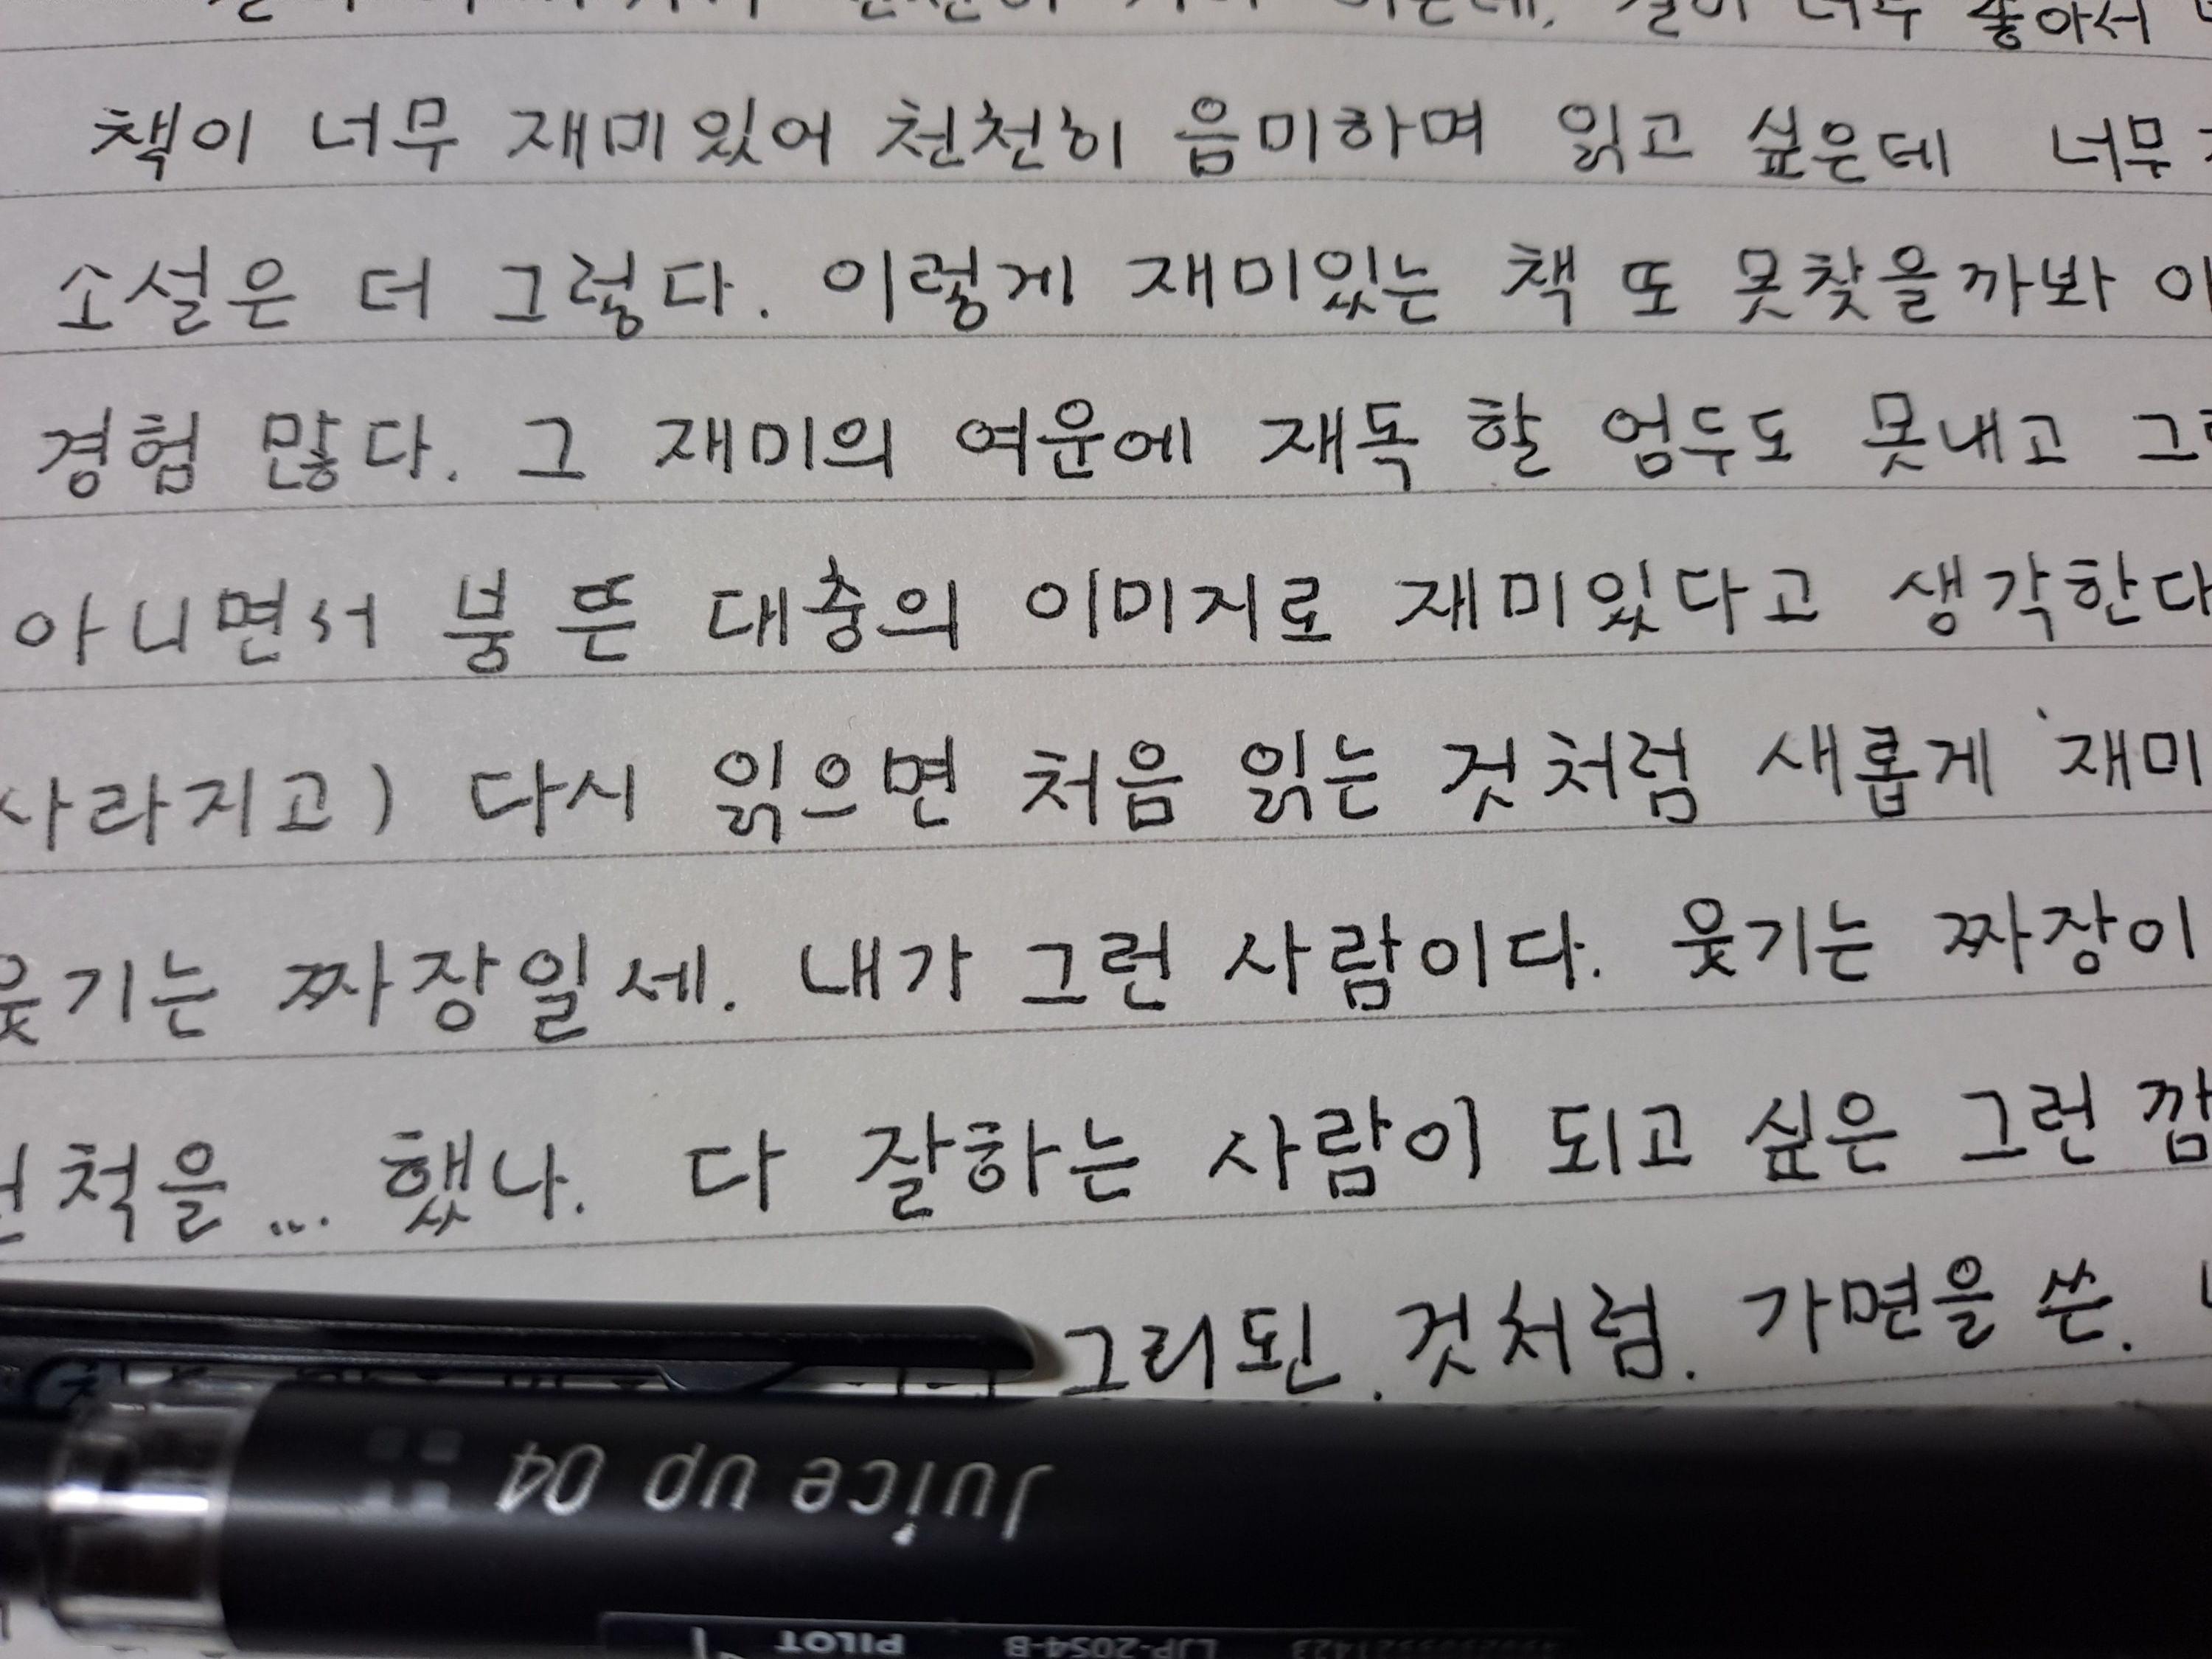 좋아서
책이 너무 재미있어 천천히 음미하며 읽고 싶은데 너무
소설은 더 그렇다. 이렇게 재미있는 책 또 못찾을까봐
경험 많다. 그 재미의 여운에 재독 할 엄두도 못내고
아니면서 붕 뜬 대충의 이미지로 재미있다고 생각한다
사라지고) 다시 읽으면 처음 읽는 것처럼 새롭게 재미
웃기는 짜장일세. 내가 그런 사람이다. 웃기는 짜장이
척을... 했나. 다 잘하는 사람이 되고 싶은 그런
그리된. 것처럼. 가면을 쓴.
Juice up 04
PILOT LJP-20S4-B